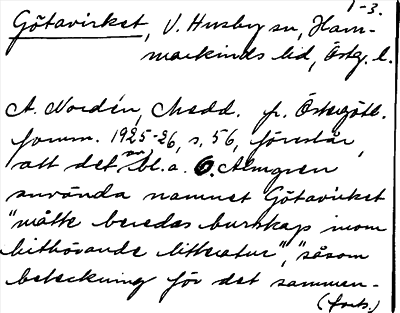 1-3.
Götavirket, V. Husby sn, Ham-
markinds hd, Östg. l.
A. Nordén, Medd. fr. Östergötl.
fornm. 1925-26, s. 56, föreslår,
att det av bl. a. O. Almgren
använda namnet Götavirket
"måtte beredas burskap inom
hithörande litteratur", "såsom
beteckning för det samman-
(forts.)